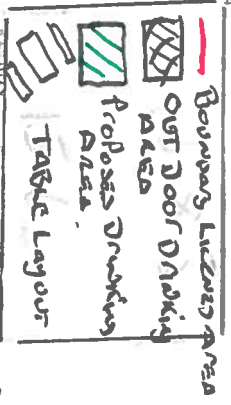 BOUNDARY LICENSED AREA
OUT DOOR DRINKING
AREA
PROPOSED DRINKING
AREA.
TABLE LAYOUT